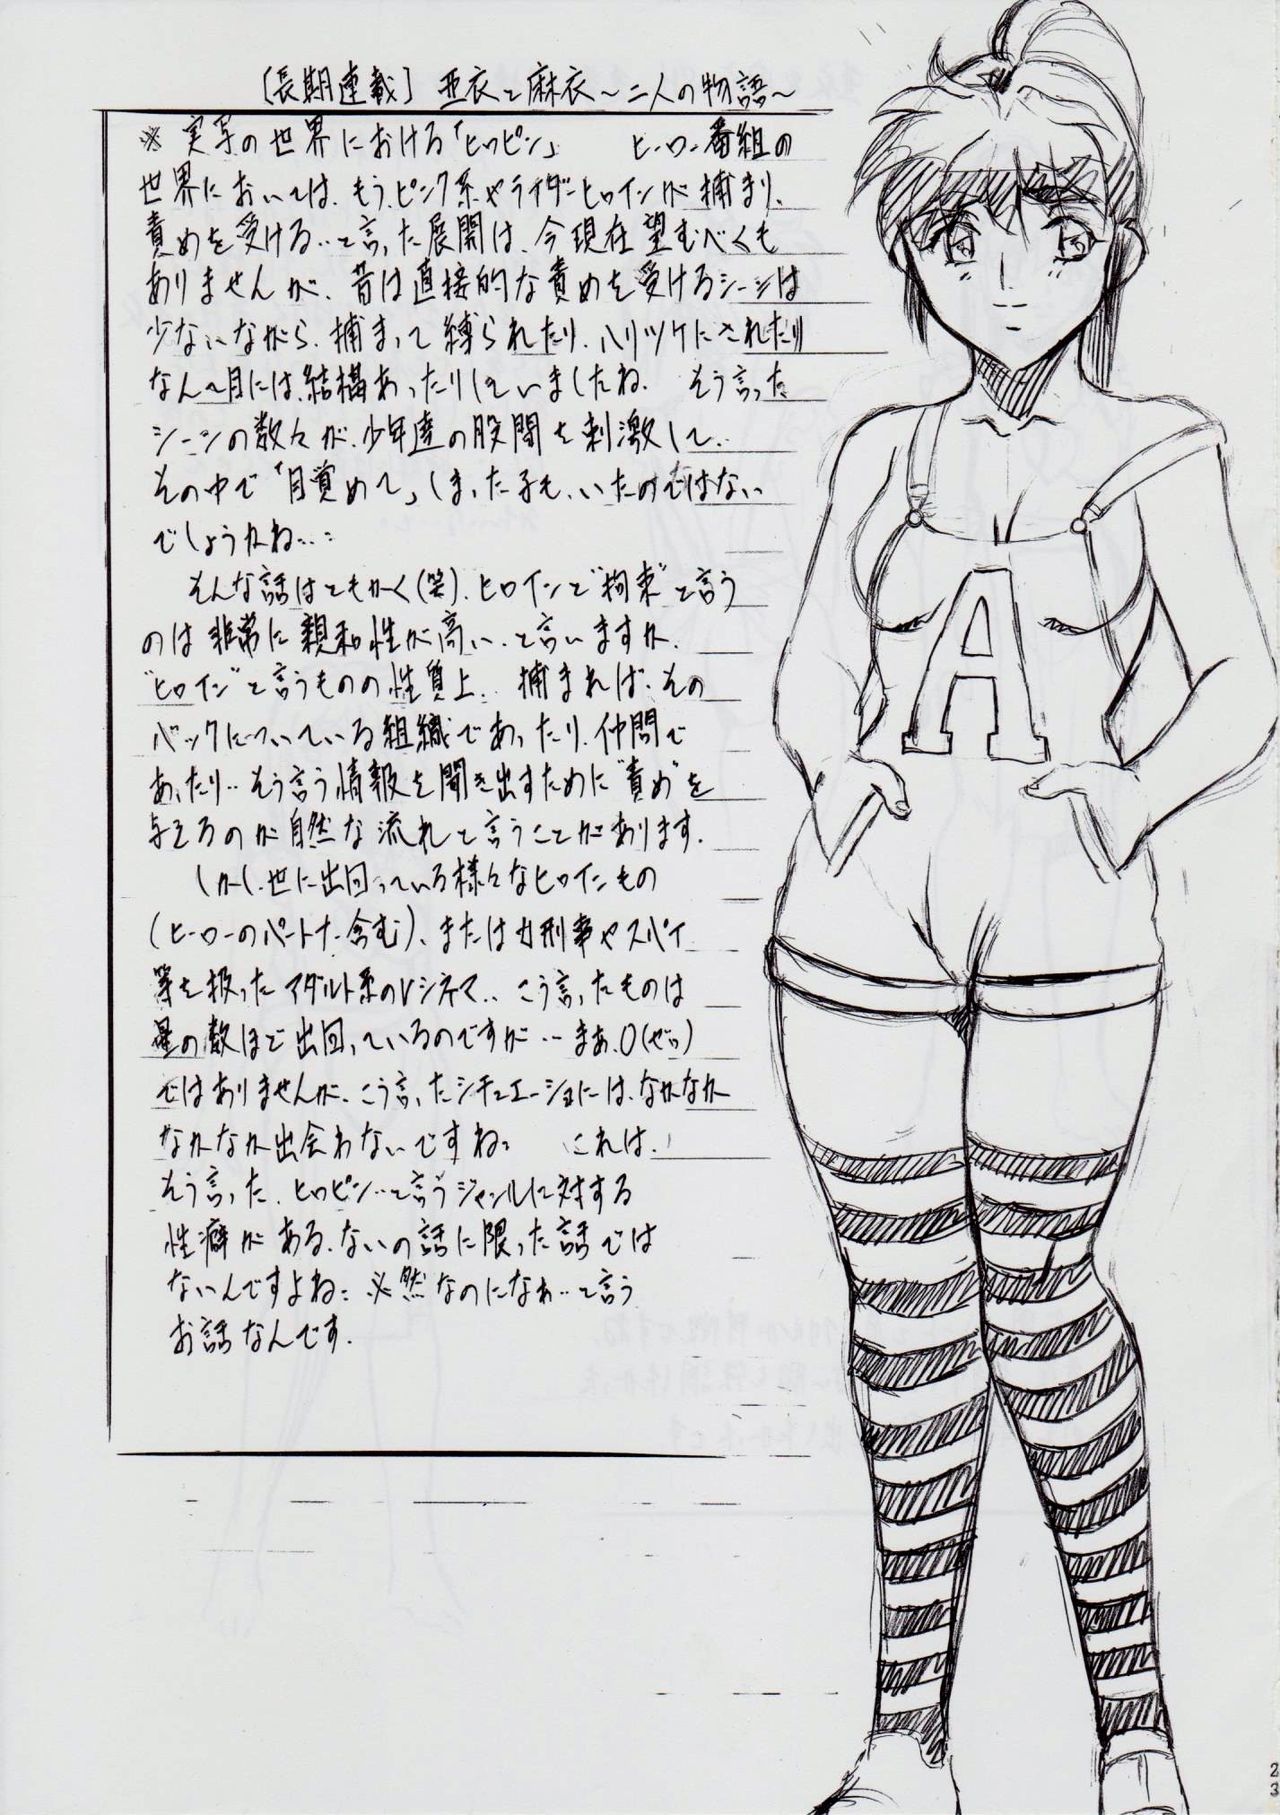 〔長期連載〕 亜衣と麻衣～二人の物語～
※ 実写の世界における「ヒロピン」 ヒーロー番組の
世界においては、もう、ピンク系やライダーヒロインが捕まり、
責めを受ける‥と言った展開は、今現在望むべくも
ありませんが、昔は直接的な責めを受けるシーンは
少ないながら、捕まって縛られたり、ハリツケにされたり
なん～目には、結構あったりしていましたね、 そう言った
シーンの数々が、少年達の股間を刺激して‥
その中で「目覚めて」しまった子も、いたのではない
でしょうかね‥：
そんな話はともかく(笑)、ヒロインと“拘束”と言う
のは非常に親和性が高い、と言いますか、
“ヒロイン”と言うものの性質上‥ 捕まれば、その
バックについている組織であったり、仲間で
あったり‥そう言う情報を聞き出すために“責め”を
与えるのが自然な流れと言うことがあります。
しかし、世に出回っている様々なヒロインもの
(ヒーローのパートナー含む)、または女刑事やスパイ
等を扱ったアダルト系のVシネマ‥ こう言ったものは
星の数ほど出回っているのですが‥まあ、0(ゼロ)
ではありませんが、こう言ったシチュエーションには、なかなか
なかなか出会わないですね： これは、
そう言った、ヒロピン‥と言うジャンルに対する
性癖がある、ないの話に限った話では
ないんですよね：必然なのになぁ‥と言う
お話なんです。
A
23